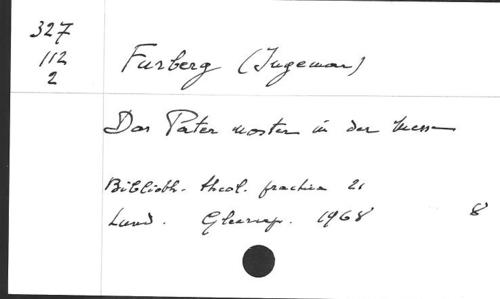 327
112
2
Furberg (Ingemar)
Das Pater noster in der Messe
Biblioth. theol. practica 21
Lund. Gleerup. 1968 8